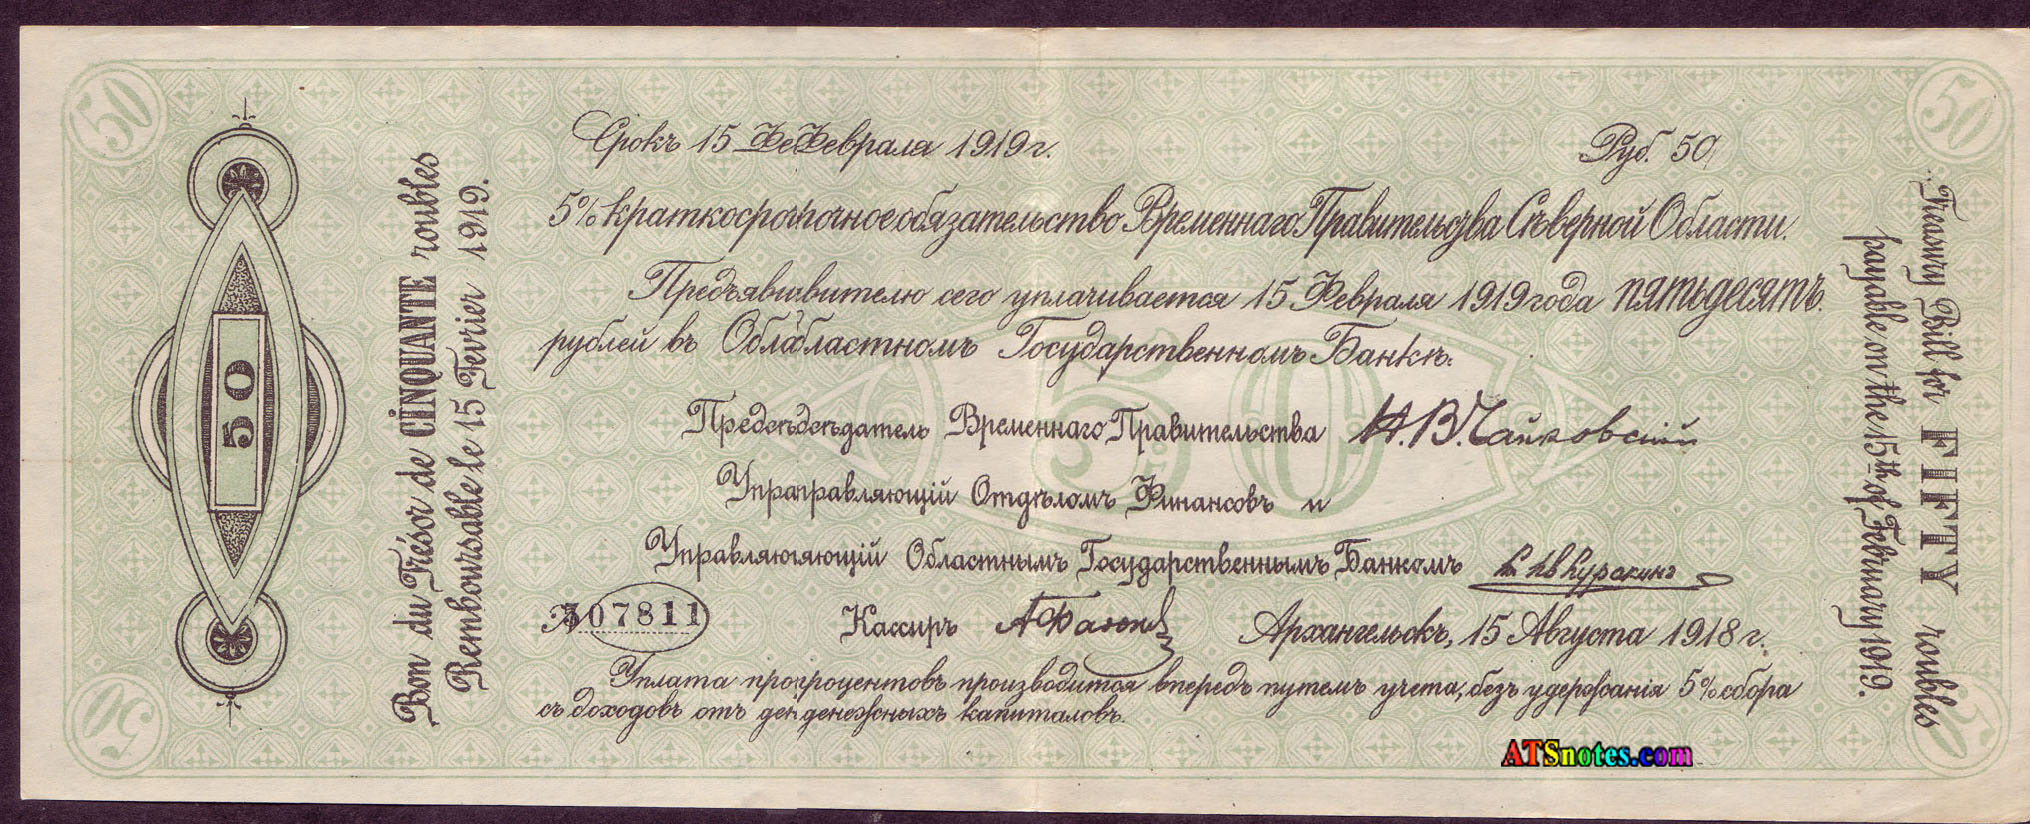 50
50
Срокъ 15 ФеФевраля 1919 г.
Руб. 50
5% краткосрочрочное обязательство Временнаго Правительства Сѣверной Области.
Предъявивителю сего уплачивается 15 Февраля 1919 года пятьдесятъ
рублей въ Облабластномъ Государственномъ Банкѣ.
Предсѣдсѣдатель Временнаго Правительства Н.В. Чайковскій
Упраправляющій Отдѣломъ Финансовъ и
Управляюляющій Областнымъ Государственнымъ Банкомъ Куракинъ
№ 307811
Кассиръ
Архангельскъ, 15 Августа 1918 г.
Уплата пропроцентовъ производится впередъ путемъ учета, безъ удержанія 5% сбора
съ доходовъ отъ ден денежныхъ капиталовъ.
50
Bon du Trésor de CINQUANTE roubles
Remboursable le 15 Fevrier 1919.
Treasury Bill for FIFTY roubles
payable on the 15th of February 1919.
50
50
ATSnotes.com